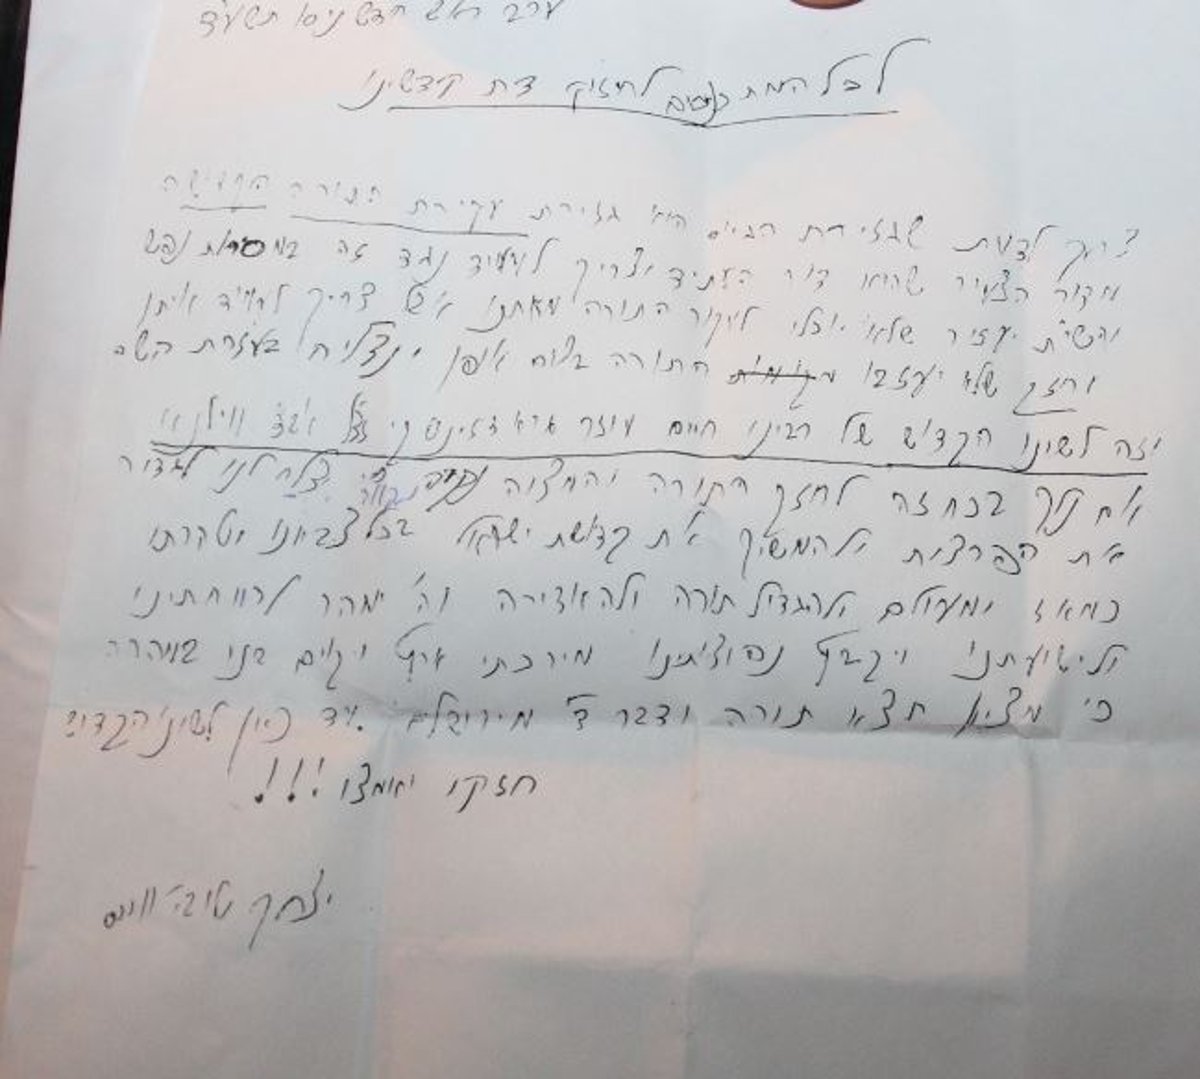 ערב ראש חדש ניסן תשע"ד
לכל המתכנסים לחיזוק דת קדשינו
צריך לדעת שגזירת הגיוס היא גזירת עקירת התורה הקדושה
מדור הצעיר שהוא דור העתיד וצריך לעמוד נגד זה במסירת נפש
והשי"ת יעזור שלא יוכלו לעקור התורה מאתנו איש צריך לחיזק אותן
וחזק שלא יעזבו התורה בשום אופן ינצליח בעזרת השם
וזה לשינו הקדוש של רבינו חיים עוזר גראדזינסקי זצ"ל אב"ד ווילנא
את נפש בכחזה לחזק התורה והמצוה יצלח לנו לגדור
את הפרצות ולהמשיך את קדושת ישראל בכל צביונו וטהרתו
כמאז ומעולם להגדיל תורה ולהאדירה וה' ימהר לרווחתינו
ולישועתנו ויקבץ נפוצותינו מירכתי ארץ ויקוים בנו במהרה
כי מציון תצא תורה ודבר ד' מירושלים. עד כאן לשינו הקדוש
חזקו ואמצו!!!
יצחק טובי' ווייס